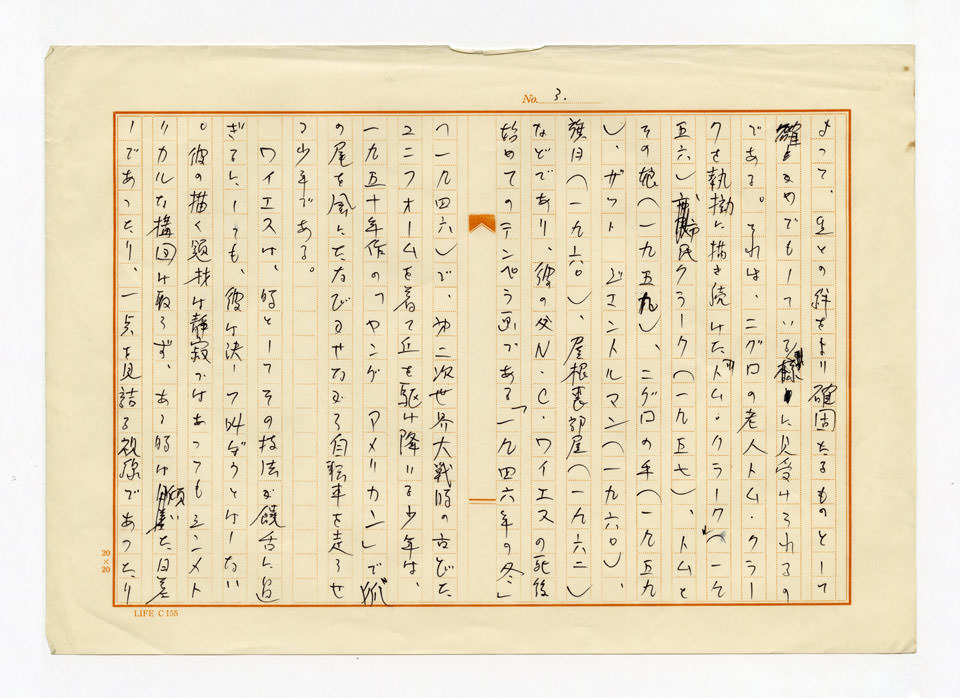 No. 3.
よって、生との絆をより確固たるものとして
確しかめでもしている様に見受けられるの
である。それは、ニグロの老人トム・クラー
クを執拗に描き続けた「トム・クラーク」(一九
五六)、市民クラーク(一九五七)、トムと
その娘(一九五九)、ニグロの手(一九五九
)、ザット ジェントルマン(一九六〇)、
旗日(一九六〇)、屋根裏部屋(一九六二)
などであり、彼の父N・C・ワイエスの死後
始めてのテンペラ画である「一九四六年の冬」
(一九四六)で、第二次世界大戦時の古びた
ユニフォームを着て丘を駆け降りる少年は、
一九五十年作の「ヤング アメリカン」で狐
の尾を風にたなびかせながら自転車を走らせ
る少年である。
ワイエスは、時としてその技法が饒舌に過
ぎるにしても、彼は決して叫ぼうとはしない
。彼の描く題材は静寂ではあってもシンメト
リカルな構図は取らず、ある時は傾いた日差
しであったり、一点を見詰る視線であったり
20×20
LIFE C155